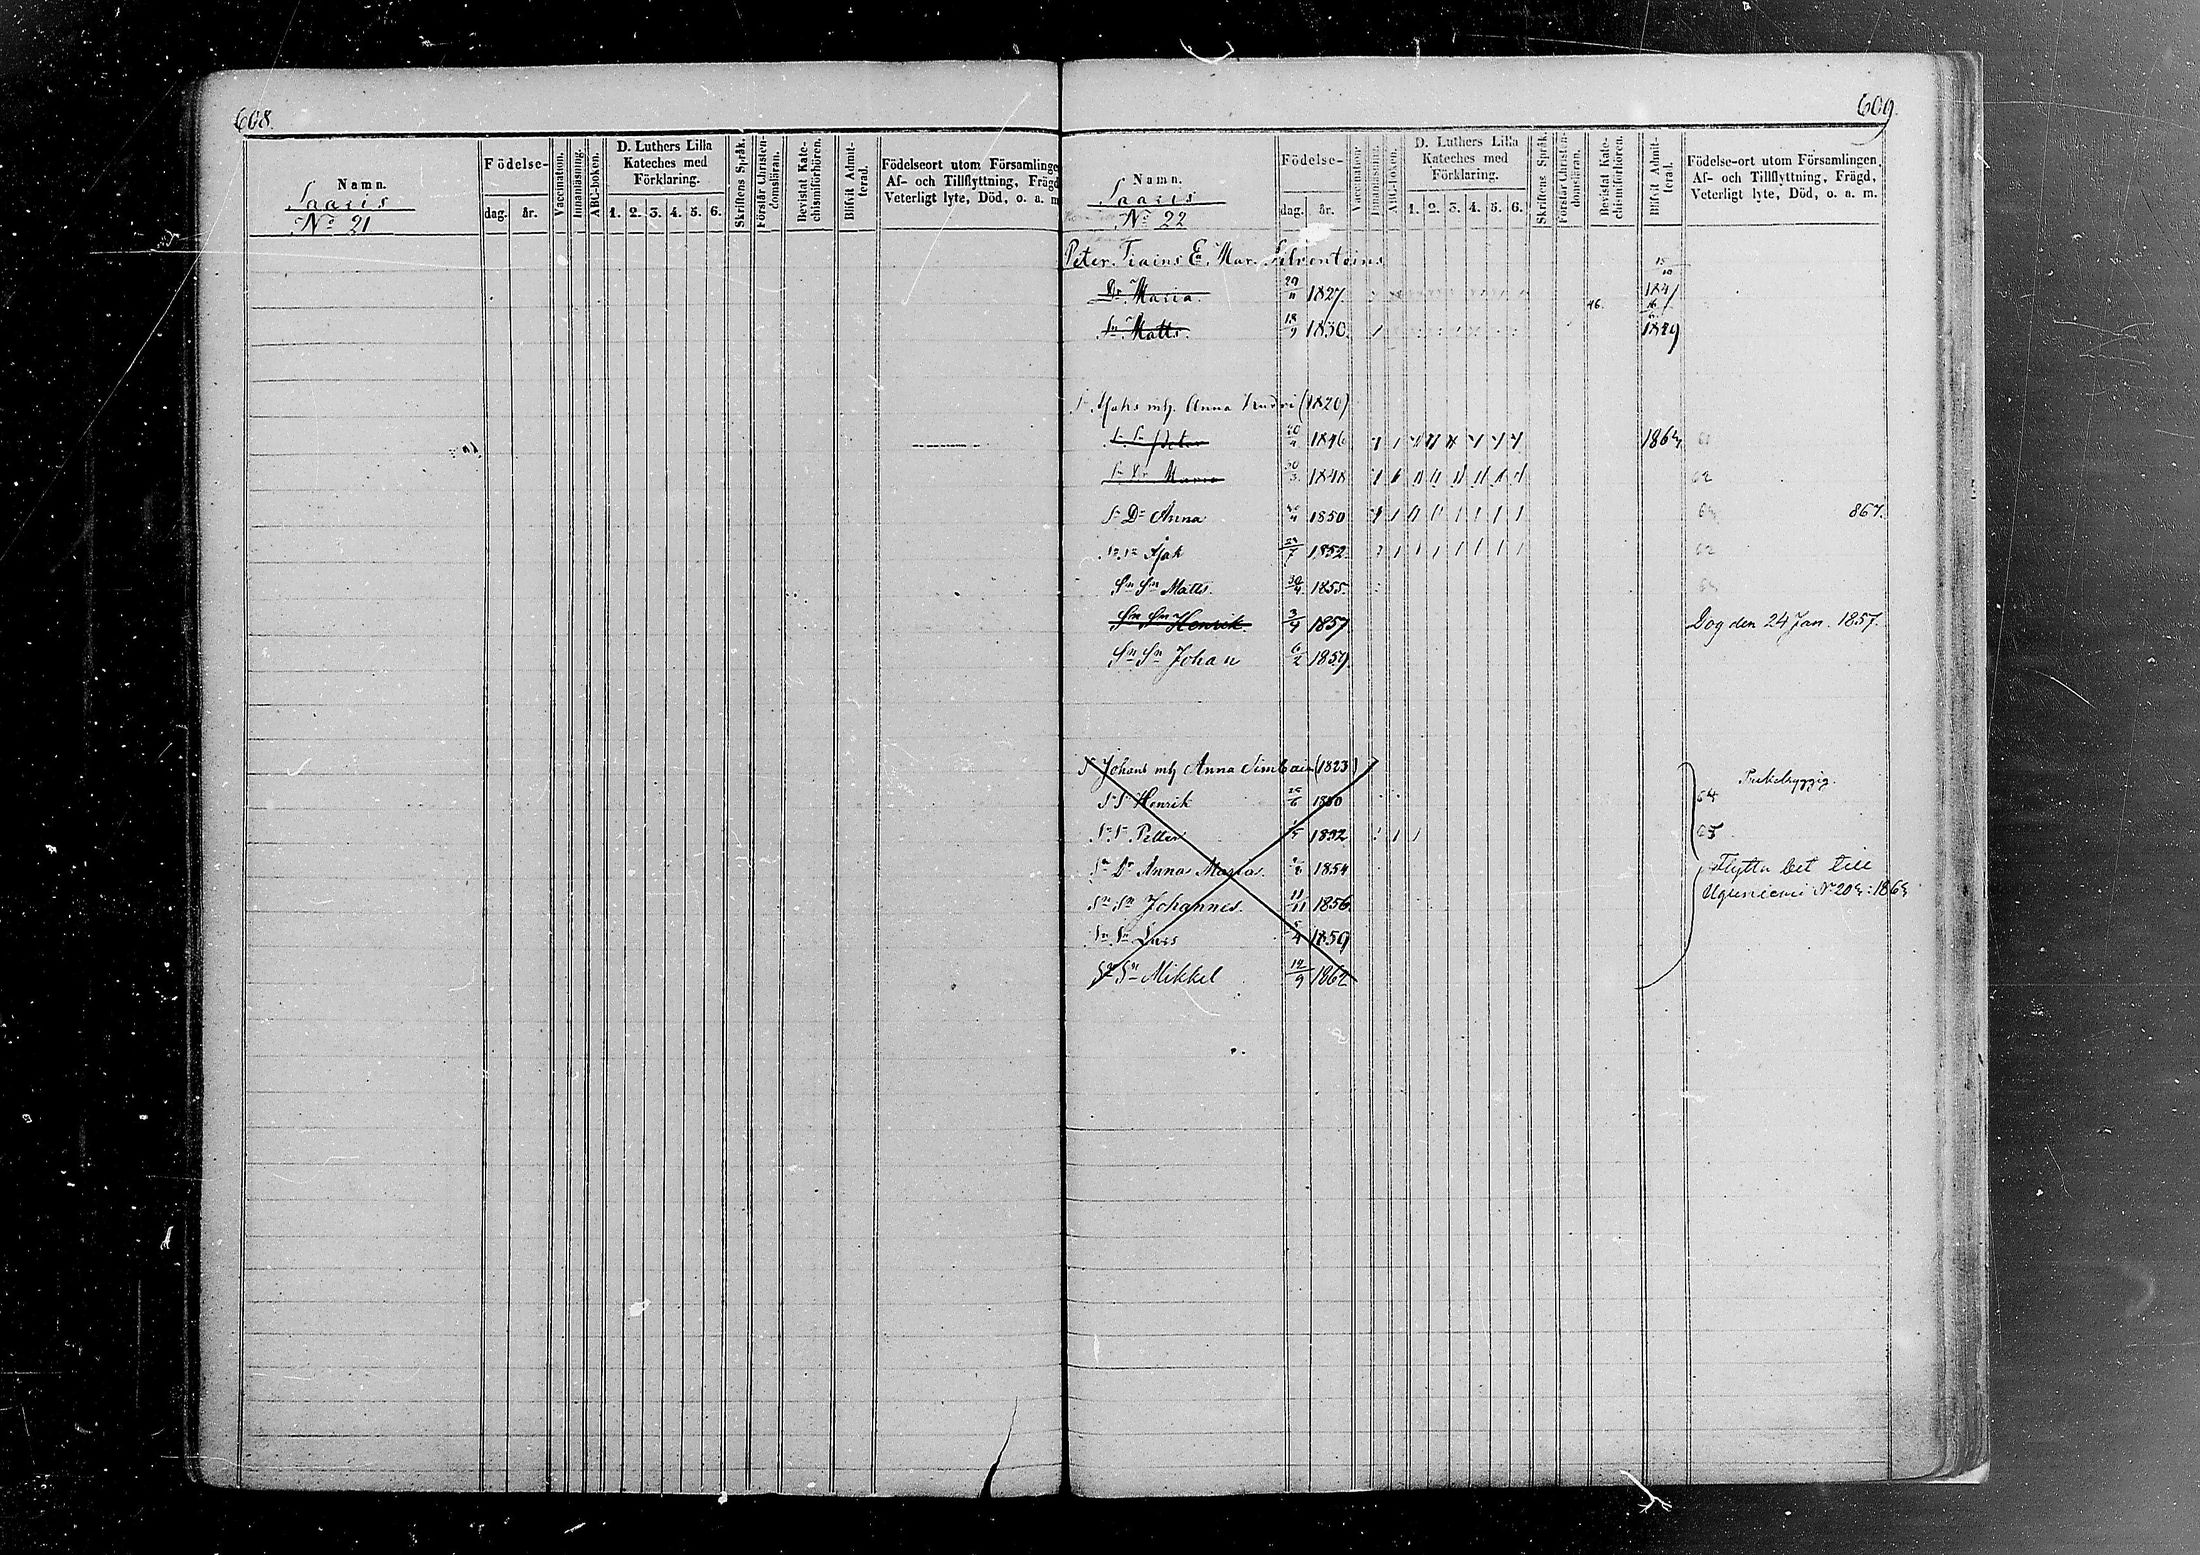 608.
Namn.
Saaris
No 21
Födelse-
dag. år.
Vaccination.
Innanläsning.
ABC-boken.
D. Luthers Lilla
Kateches med
Förklaring.
1. 2. 3. 4. 5. 6.
Skriftens Språk.
Förstår Christen-
domsläran.
Bevistat Kate-
chismiförhören.
Blifvit Admit-
terad.
Födelseort utom Församlinge
Af- och Tillflyttning, Frägd
Veterligt lyte, Död, o. a. m
609.
Namn.
Saaris
No 22
Födelse-
dag. år.
Vaccination.
Innanläsning.
ABC-boken.
D. Luthers Lilla
Kateches med
Förklaring.
1. 2. 3. 4. 5. 6.
Skriftens Språk.
Förstår Christen-
domsläran.
Bevistat Kate-
chismiförhören.
Blifvit Admit-
terad.
Födelse-ort utom Församlingen,
Af- och Tillflyttning, Frägd,
Veterligt lyte, Död, o. a. m.
Peter Tiains En. Mar.
Dr. Maria. 29/11 1827 46.
Sn Matts. 18/9 1830. 1849
Anna (1820)
S. Sn Peter 1846 1864
Sn Dr Maria 30/3 1848 62
Sn Dr Anna 1850 867.
Sn Sn 1852 62
Sn Sn Matts. 30/4 1855.
Sn Sn Henrik. 3/4 1857 Dog den 24 Jan. 1857.
Sn Sn Johan 6/2 1859
S Johans mh Anna (1823)
Sn Sn Henrik 1850 64
Sn Sn Petter 1852 65
Sn Dr Anna Maria. 1854 Flytta Det till
Sn Sn Johannes. 11/11 1856. No 20
Sn Sn Lars 5/4 1859
Sn Sn Mikkel 19/9 1862